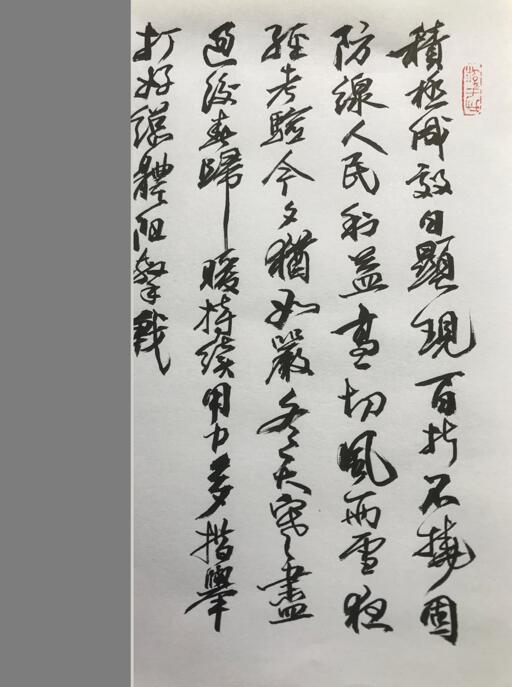 積極成效日顯現百折不撓固
防線人民利益高一切風雨雪狂
經考驗今夕猶如嚴冬天寒盡
過後春歸暖持續用力多措舉
打好總體阻擊戰